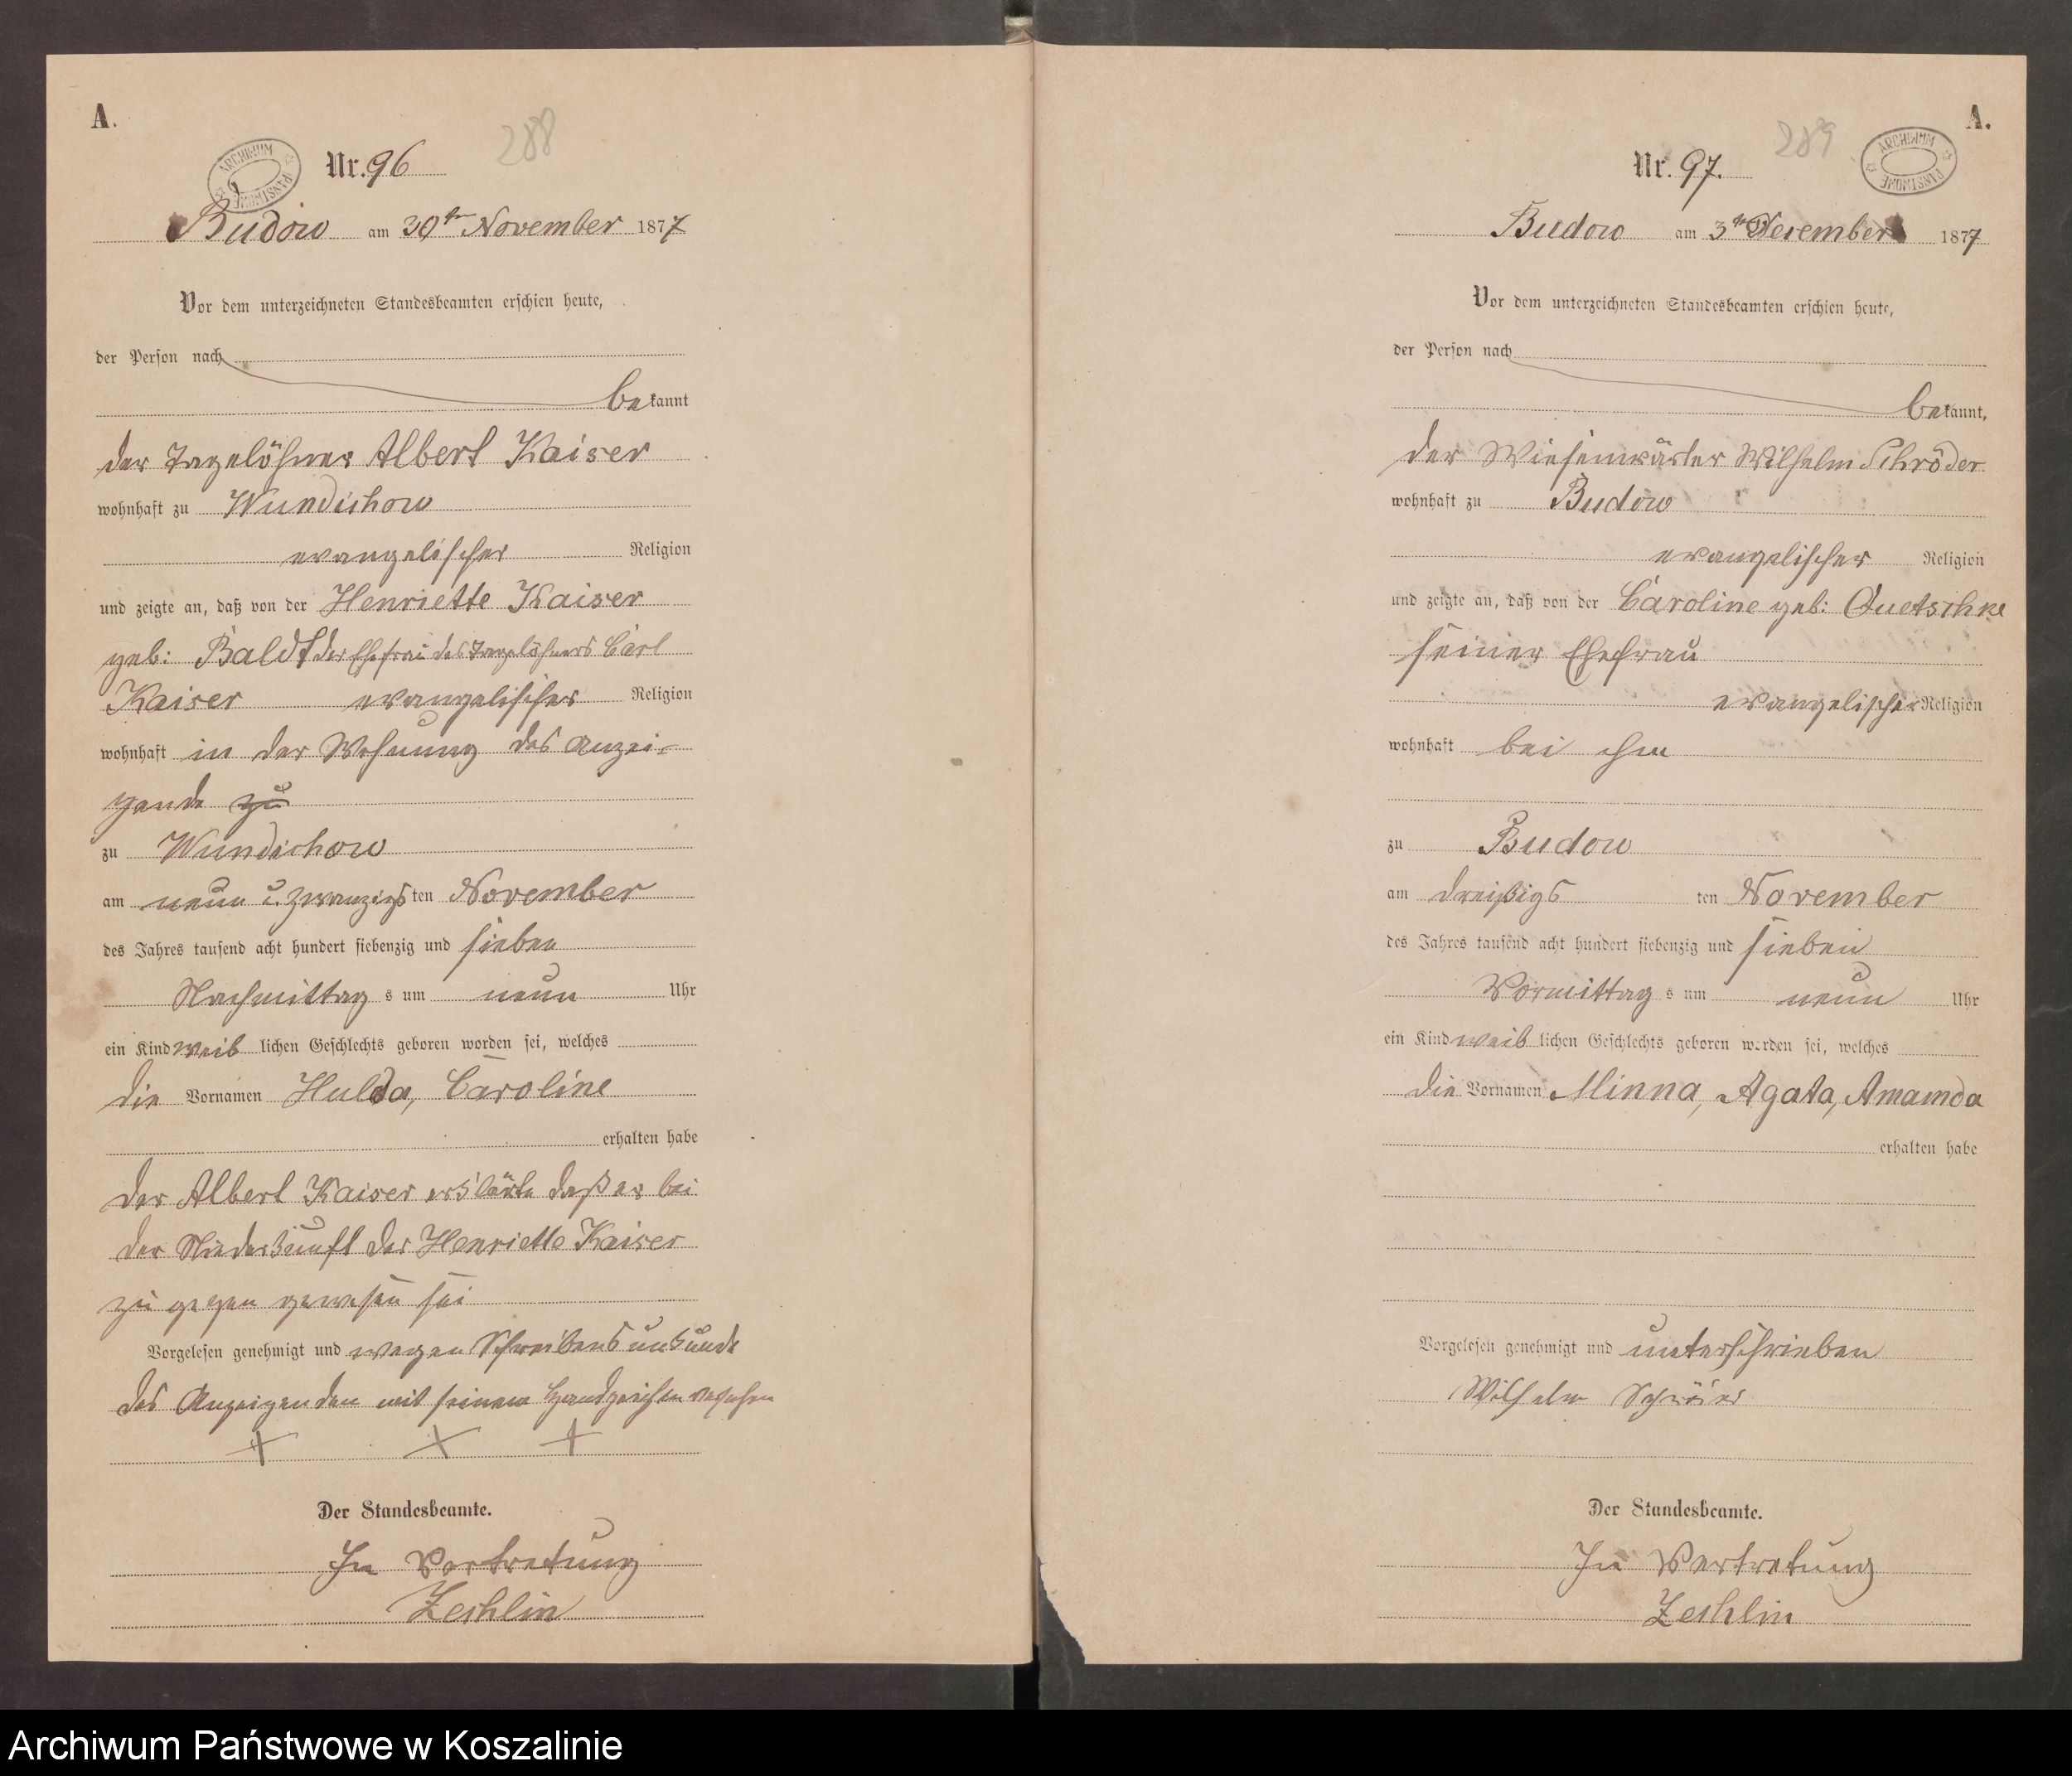 A.
288
ARCHIWUM PAŃSTWOWE
Nr. 96
Budow am 30ten November 1877
Vor dem unterzeichneten Standesbeamten erschien heute,
der Person nach
bekannt
der Tagelöhner Albert Kaiser
wohnhaft zu Wundichow
evangelischer Religion
und zeigte an, daß von der Henriette Kaiser
geb: Baldt der Ehefrau des Tagelöhners Carl
Kaiser evangelischer Religion
wohnhaft in der Wohnung des Anzei-
gende zu
zu Wundichow
am neun u. zwanzigsten November
des Jahres tausend acht hundert siebenzig und sieben
Nachmittags um neun Uhr
ein Kind weiblichen Geschlechts geboren worden sei, welches
die Vornamen Hulda, Caroline
erhalten habe
Der Albert Kaiser erklärte daß er bei
der Niederkunft der Henriette Kaiser
zu gegen gewesen sei
Vorgelesen genehmigt und wegen Schreibensunkunde
des Anzeigenden mit seinem Handzeichen versehen
+ + +
Der Standesbeamte.
In Vertretung
Zechlin
A.
289
ARCHIWUM PAŃSTWOWE
Nr. 97.
Budow am 3ten Dezember 1877
Vor dem unterzeichneten Standesbeamten erschien heute,
der Person nach
bekannt,
der Wiesenwärter Wilhelm Schröder
wohnhaft zu Budow
evangelischer Religion
und zeigte an, daß von der Caroline geb: Quetschke
seiner Ehefrau
evangelischer Religion
wohnhaft bei ihm
zu Budow
am dreißigsten November
des Jahres tausend acht hundert siebenzig und sieben
Vormittags um neun Uhr
ein Kind weiblichen Geschlechts geboren worden sei, welches
die Vornamen Minna, Agata, Amamda
erhalten habe
Vorgelesen genehmigt und unterschrieben
Wilhelm
Der Standesbeamte.
In Vertretung
Zechlin
Archiwum Państwowe w Koszalinie